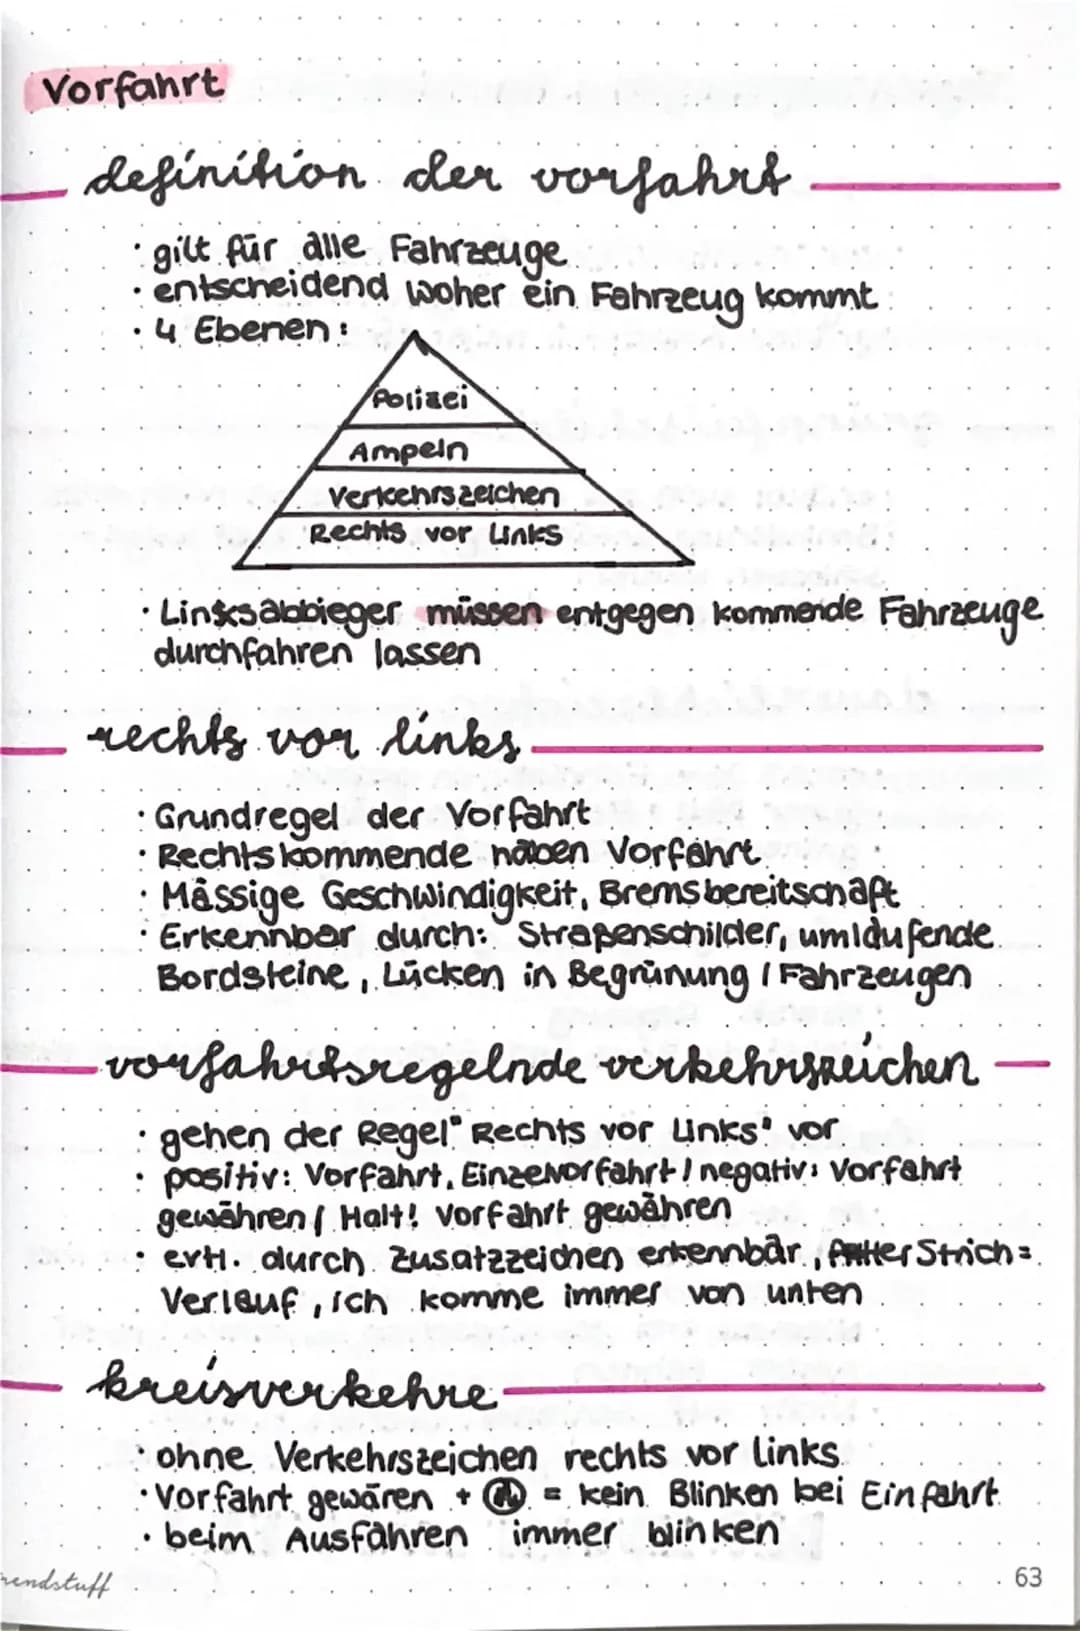 Vorfahrt
definition der vorfahrt
· gilt für alle Fahrzeuge
· entscheidend woher ein Fahrzeug kommt
· 4 Ebenen:
Polizei
Ampeln
Verkehrszeichen
Rechts vor Links
· Linksabbieger müssen entgegen kommende Fahrzeuge
durchfahren lassen
rechts vor links
· Grundregel der Vorfahrt
· Rechtskommende haben Vorfahrt
· Mässige Geschwindigkeit, Bremsbereitschaft
· Erkennbar durch: Strapenschilder, umlaufende
Bordsteine, Lücken in Begrünung / Fahrzeugen
vorfahrtsregelnde verkehrszeichen
· gehen der Regel "Rechts vor Links" vor
· positiv: Vorfahrt, Einzelvorfahrt / negativ: Vorfahrt
gewähren / Halt! Vorfahrt gewähren
· evtl. durch Zusatzzeichen erkennbar, fetter Strich =
Verlauf, ich komme immer von unten
kreisverkehre
· ohne Verkehrszeichen rechts vor links
· Vorfahrt gewären + = kein Blinken bei Einfahrt
· beim Ausfahren immer blinken
endstuff
63